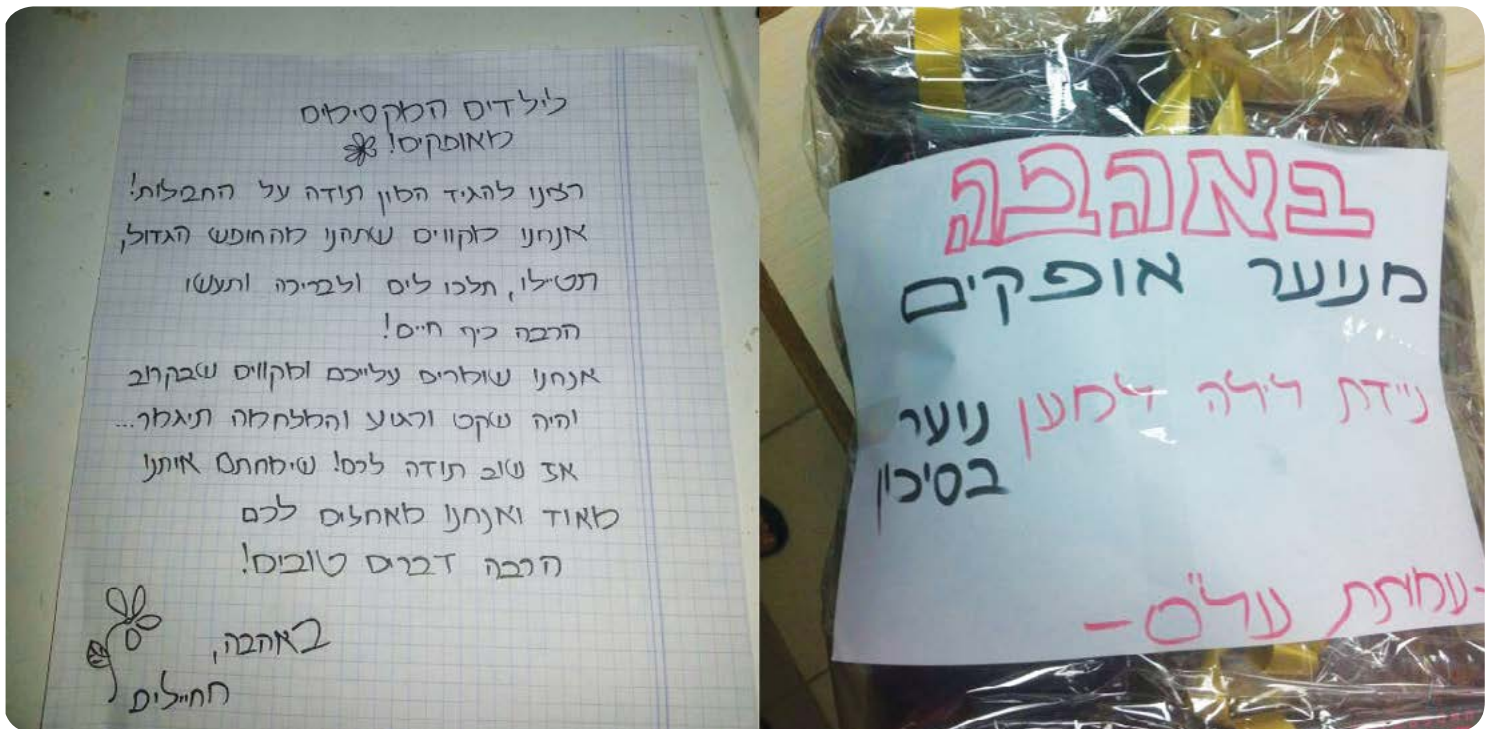 לילדים המקסימים
מאופקים!
רצינו להגיד המון תודה על החבילות!
אנחנו מקווים שתהנו מהחופש הגדול,
תטיילו, תלכו לים ולבריכה ותעשו
הרבה כיף חיים!
אנחנו שומרים עלייכם ומקווים שבקרוב
יהיה שקט ורגוע והמלחמה תיגמר...
אז שוב תודה לכם! שימחתם אותנו
מאוד ואנחנו מאחלים לכם
הרבה דברים טובים!
באהבה,
חיילים
באהבה
מנוער אופקים
ניידת לילה למען נוער
בסיכון
-עמותת על"ם-